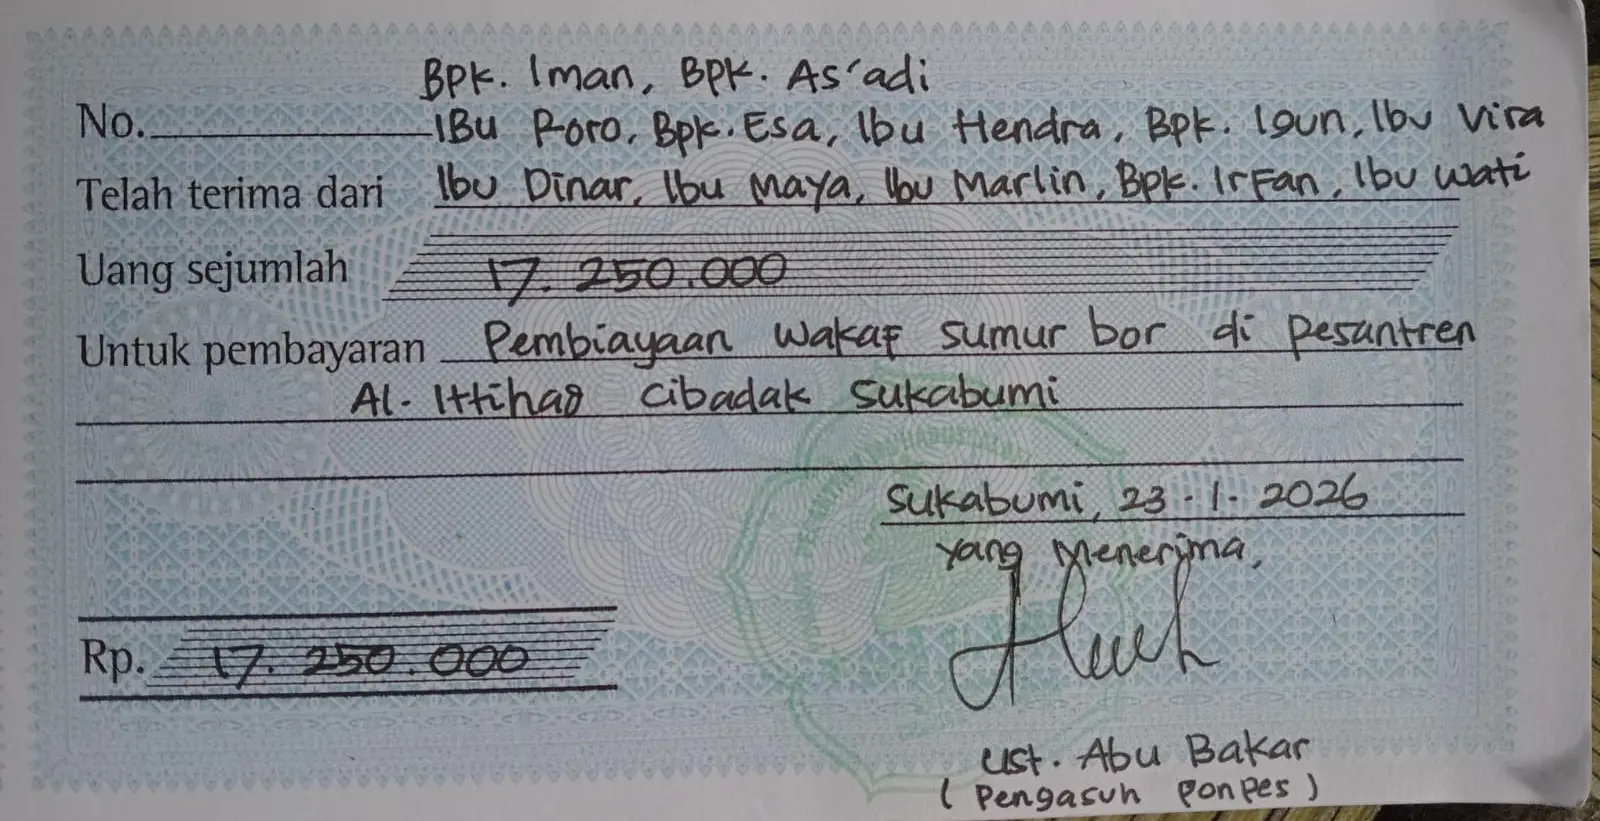 Bpk. Iman, Bpk. As'adi
No. IBu Roro, Bpk. Esa, Ibu Hendra, Bpk. Igun, Ibu Vira
Telah terima dari Ibu Dinar, Ibu Maya, Ibu Marlin, Bpk. Irfan, Ibu Wati
Uang sejumlah 17.250.000
Untuk pembayaran Pembiayaan wakaf sumur bor di pesantren
Al-Ittihad Cibadak Sukabumi
Sukabumi, 23-1-2026
Yang Menerima,
Rp. 17.250.000
Ust. Abu Bakar
(Pengasuh Ponpes)